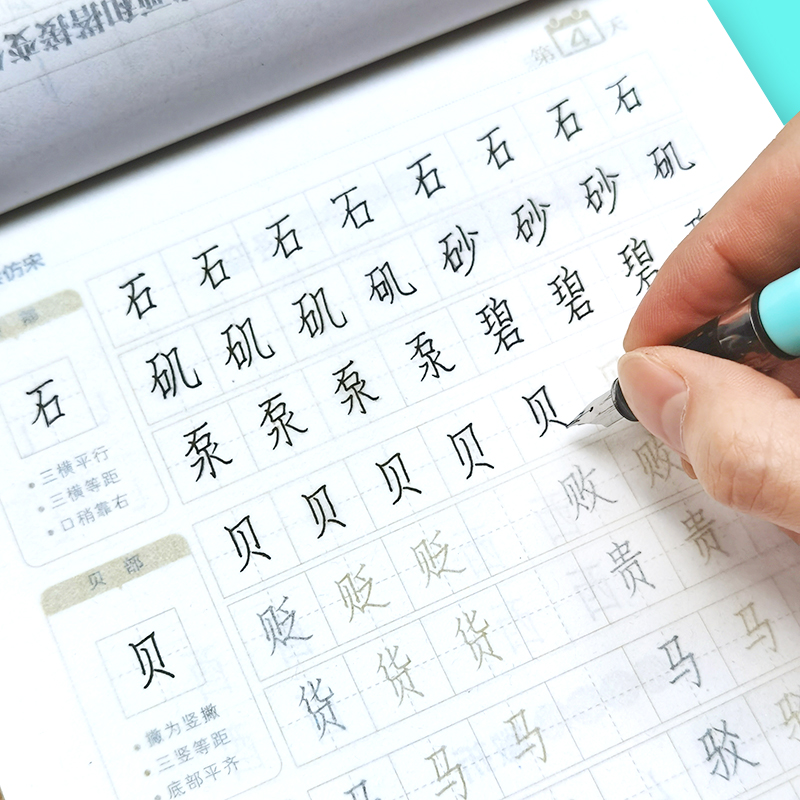 第4天
仿宋
石石石石石石石石
矶矶矶矶砂砂砂矶
泵泵泵泵碧碧碧
贝贝贝贝贝
贬贬贬败败
货货货贵贵
马马马马马
驳
部
石
三横平行
三横等距
口稍靠右
贝部
贝
撇为竖撇
三竖等距
底部平齐